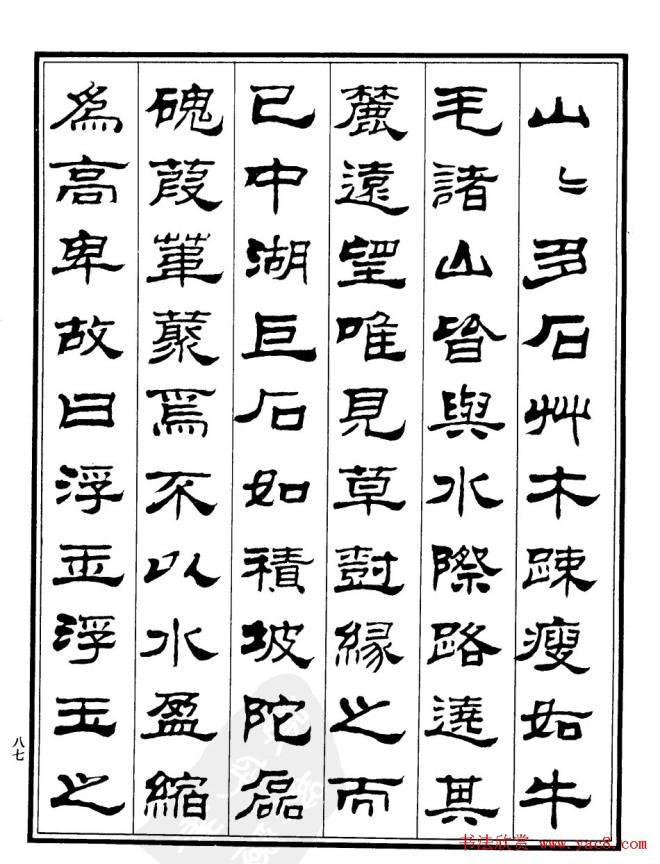 山〻多石艸木踈瘦如牛
毛諸山皆與水際路遶其
麓遠望唯見草樹緣之而
已中湖巨石如積坡陀磊
磈葭葦藂焉不以水盈縮
為高卑故曰浮玉浮玉之
八七
书法欣赏 www.yac8.com